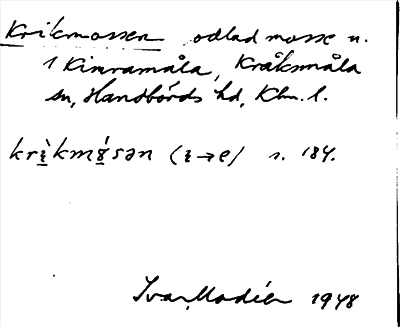 Krikmossen odlad mosse u.
1 Kimramåla, Kråksmåla
sn, Handbörds hd, Klm. l.
krìkmósən (ɪ→e) s. 184.
Ivar Modéer 1948